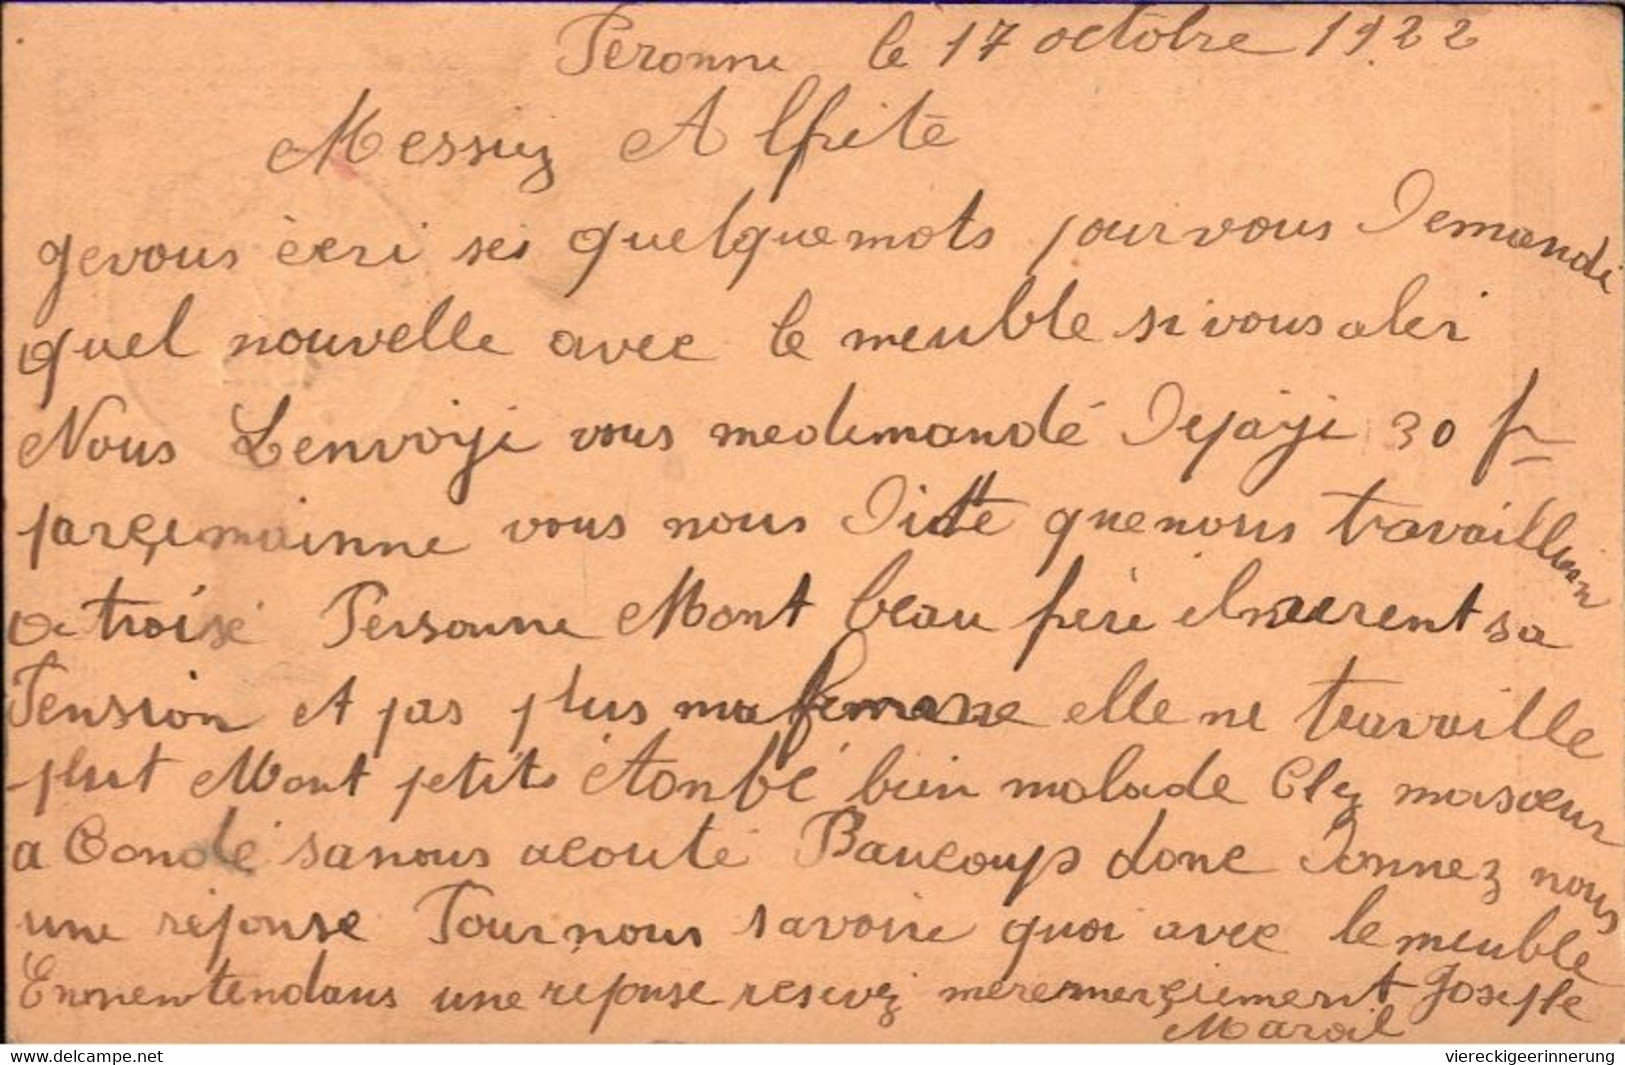 Peronne le 17 octobre 1922
Messiez Alfrite
Jevous ècri ses quelquemots pour vous Demandé
quel nouvelle avec le meuble si vous aler
Nous Lenvoiyé vous medemandé Depayé 30 fr
parçemainne vous nous Ditte quenous travaillion
a troisé Personne Mont beau père ilneurent sa
Pension et pas plus ma femme elle ne travaille
plut Mont petits étonbé bien malade Chez masœur
a Condé sanous acouté Baucoup donc Donnez nous
une réponse Pournous savoire quoi avec le meuble
Ennentendans une réponse resevez meremerçiement Joseple
Maroil
viereckigeerinnerung
www.delcampe.net